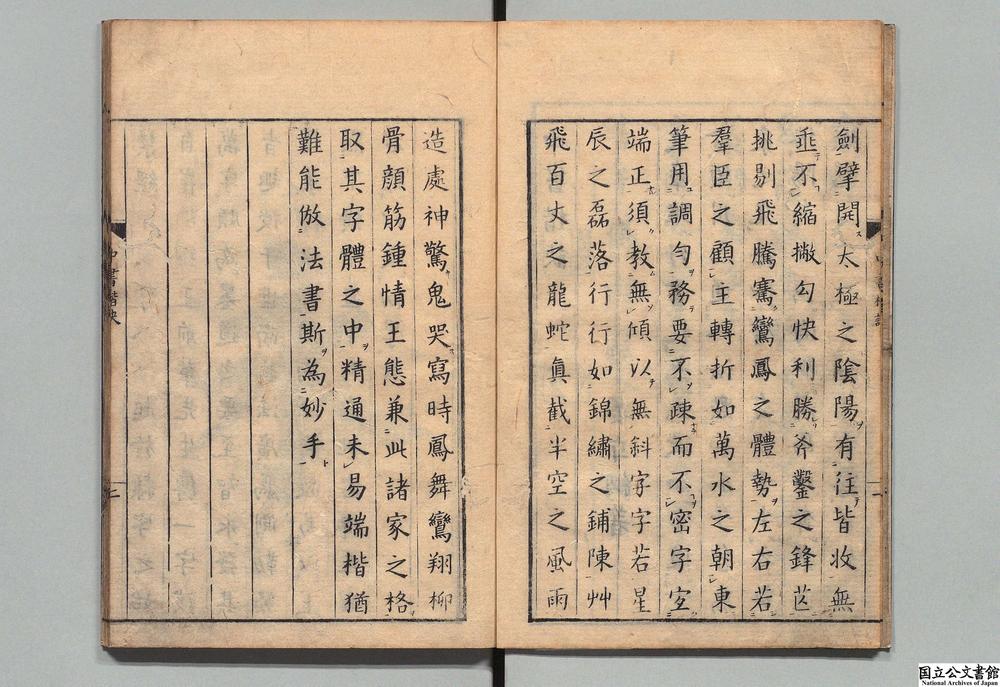 劍擘開太極之陰陽有往皆收無
垂不縮撇勾快利勝斧鑿之鋒芒
挑剔飛騰騫鸞鳳之體勢左右若
羣臣之顧主轉折如萬水之朝東
筆用調勻務要不踈而不密字宜
端正須教無傾以無斜字字若星
辰之磊落行行如錦繡之鋪陳艸
飛百丈之龍蛇眞截半空之風雨
造處神驚鬼哭寫時鳳舞鸞翔柳
骨顔筋鍾情王態兼此諸家之格
取其字體之中精通未易端楷猶
難能倣法書斯為妙手
書楷訣
二
国立公文書館
National Archives of Japan